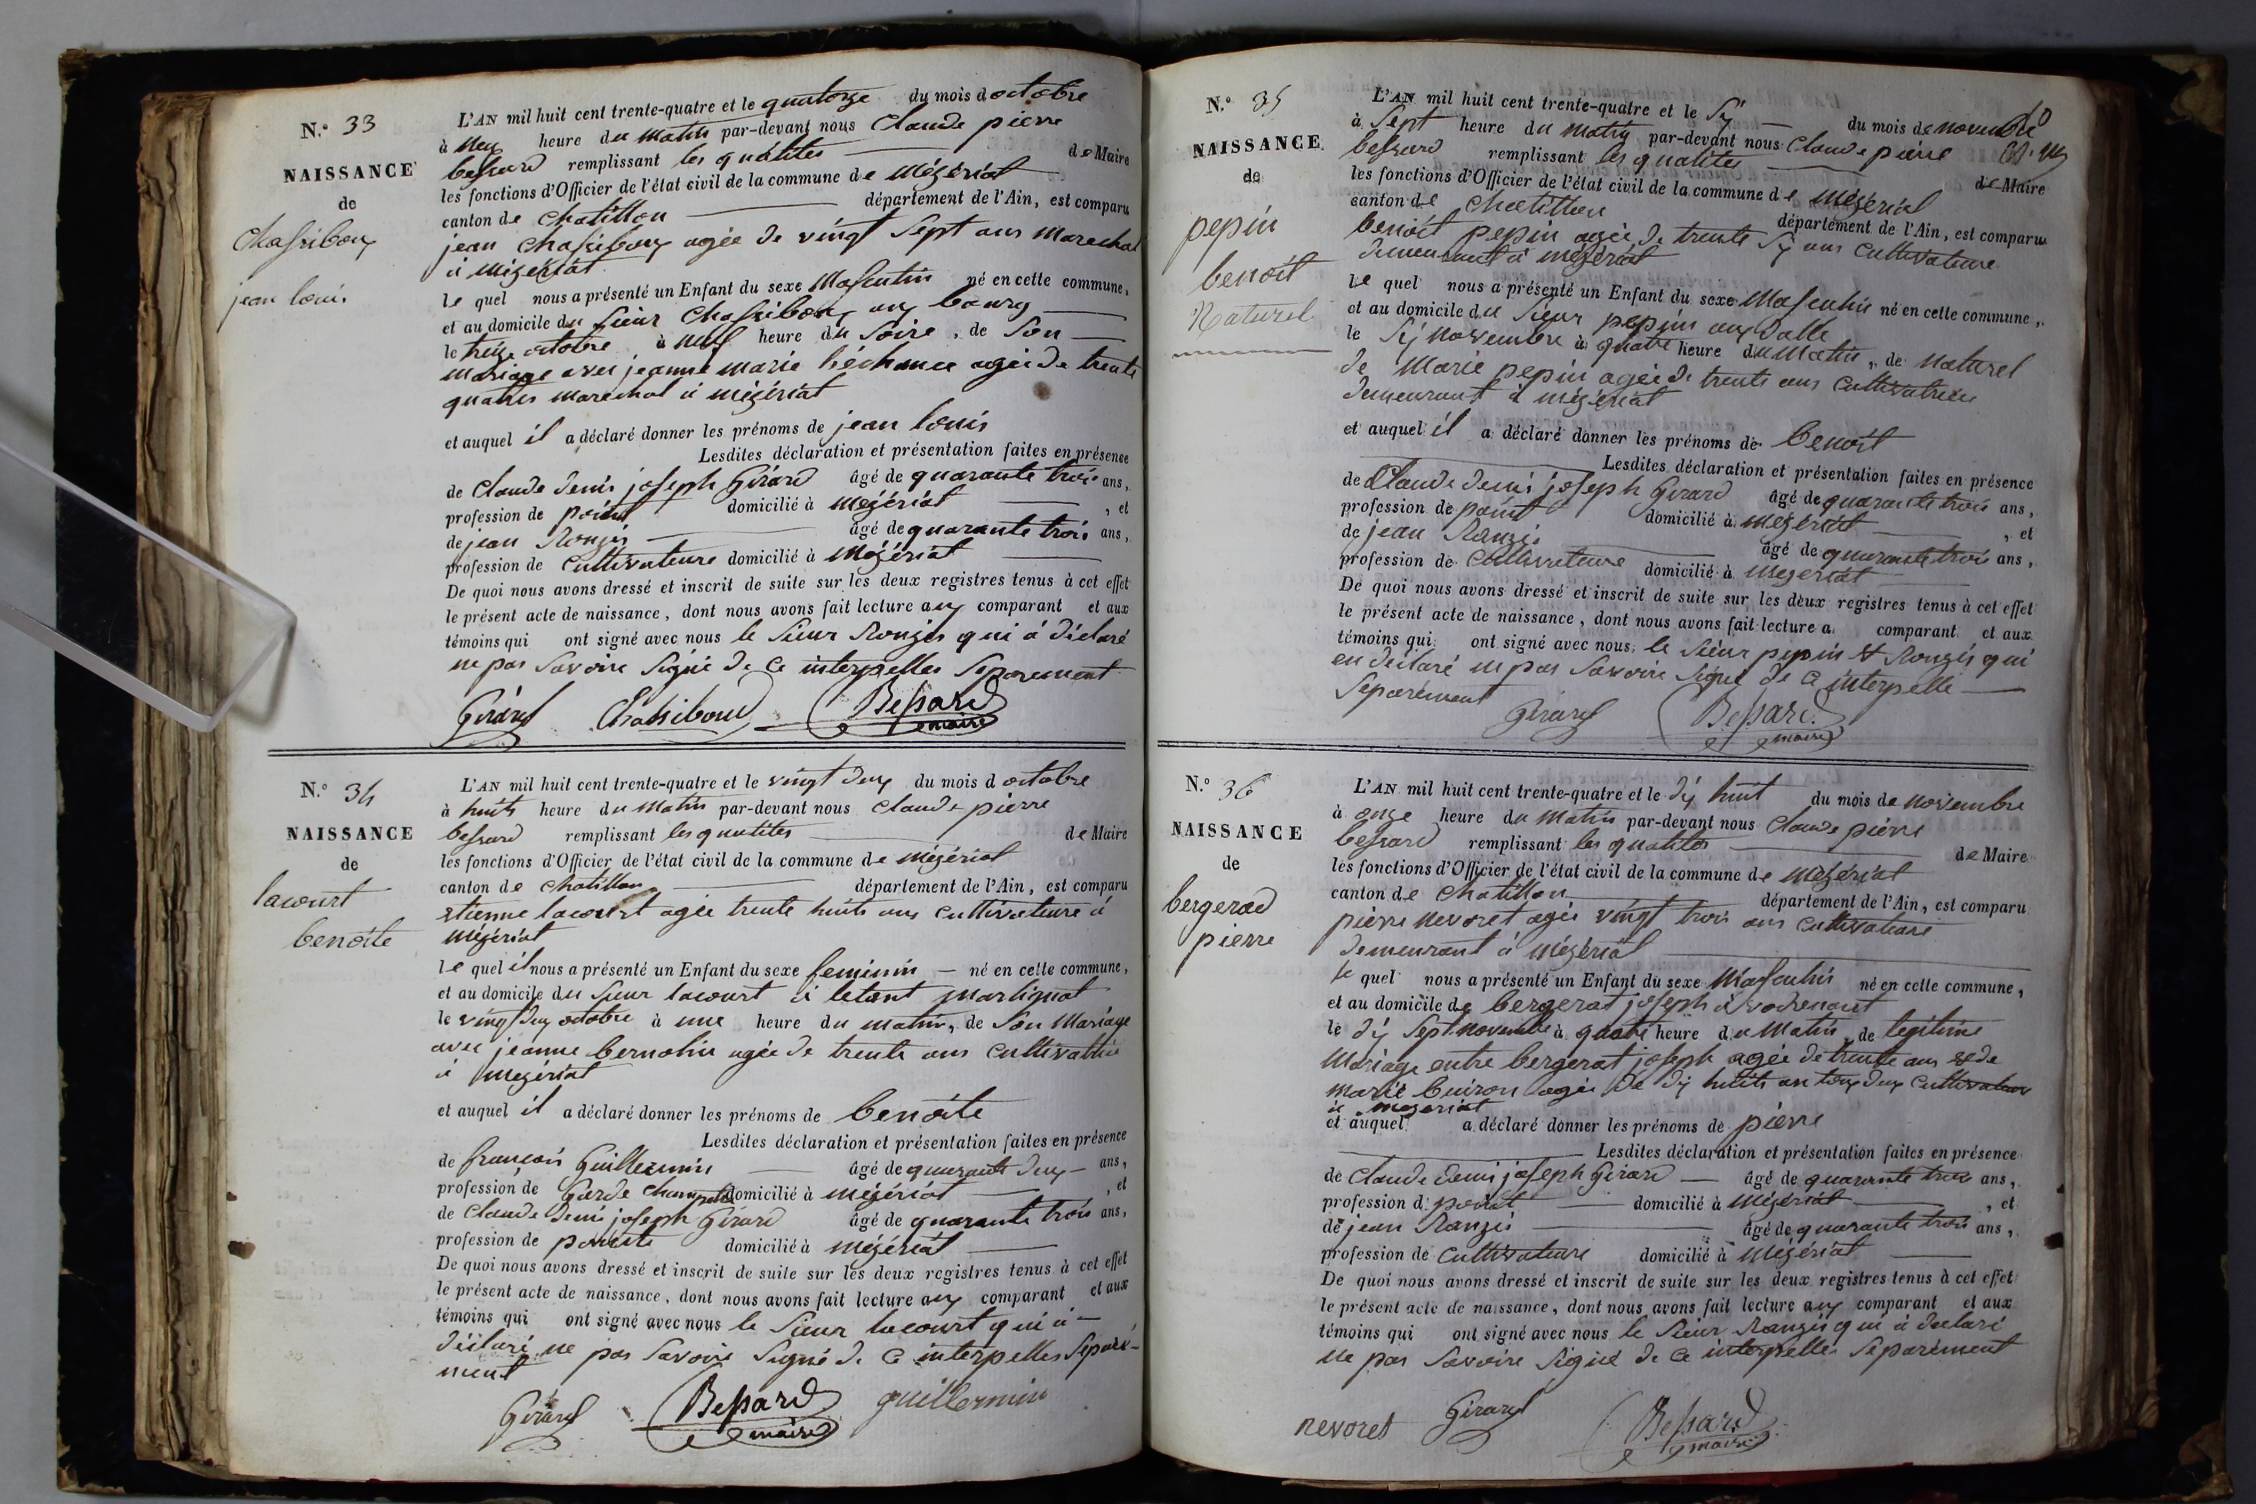 N.° 33
NAISSANCE
de
Chassiboux
jean louis
L'AN mil huit cent trente-quatre et le quatorze du mois d octobre
à neuf heure du matin par-devant nous Claude pierre
bessard remplissant les qualites de Maire
les fonctions d'Officier de l'état civil de la commune de mézériat
canton de chatillon département de l'Ain, est comparu
jean Chassiboux agée de vingt Sept ans marechal
à mézériat
Le quel nous a présenté un Enfant du sexe Masculin né en cette commune,
et au domicile du Sieur Chassiboux au bourg
le treize octobre à neuf heure du Soire, de Son
mariage avec jeanne marie agée de trente
quatres marechal à mézériat
et auquel il a déclaré donner les prénoms de jean louis
Lesdites déclaration et présentation faites en présence
de Claude denis joseph Girard âgé de quarante trois ans,
profession de domicilié à mézériat, et
de jean Rongis âgé de quarante trois ans,
profession de Cultivateure domicilié à mézériat
De quoi nous avons dressé et inscrit de suite sur les deux registres tenus à cet effet
le présent acte de naissance, dont nous avons fait lecture aux comparant et aux
témoins qui ont signé avec nous le Sieur Rongis qui à déclaré
ne pas Savoire Signé de Ce interpelles Séparement
Girard Chassiboud Bessard maire
N.° 34
NAISSANCE
de
lacourt
benoîte
L'AN mil huit cent trente-quatre et le vingt deux du mois d octobre
à huits heure du matin par-devant nous Claude pierre
bessard remplissant les qualites de Maire
les fonctions d'Officier de l'état civil de la commune de mézériat
canton de chatillon département de l'Ain, est comparu
etienne lacourt agée trente huits ans cultivateure à
mézériat
Le quel il nous a présenté un Enfant du sexe feminin né en cette commune,
et au domicile du Sieur lacourt à letant marlignat
le vingt deux octobre à une heure du matin, de Son Mariage
avec jeanne bernolin agée de trente ans Cultivatrice
à mézériat
et auquel il a déclaré donner les prénoms de benoîte
Lesdites déclaration et présentation faites en présence
de françois Guillermin âgé de quarante deux ans,
profession de Garde Champetre domicilié à mézériat, et
de Claude denis joseph Girard âgé de quarante trois ans,
profession de domicilié à mézériat
De quoi nous avons dressé et inscrit de suite sur les deux registres tenus à cet effet
le présent acte de naissance, dont nous avons fait lecture aux comparant et aux
témoins qui ont signé avec nous le Sieur lacourt qui à
déclaré ne pas Savoire Signé de Ce interpelles Séparé-
ment
Girard Bessard maire guillermin
N.° 35
NAISSANCE
de
pepin
benoît
Naturel
L'AN mil huit cent trente-quatre et le Six du mois de novembre
à Sept heure du matin par-devant nous Claude pierre
bessard remplissant les qualites de Maire
les fonctions d'Officier de l'état civil de la commune de mézériat
canton de chatillon département de l'Ain, est comparu
benoît pepin agée de trente Six ans Cultivateure
demeurant à mézériat
Le quel nous a présenté un Enfant du sexe Masculin né en cette commune,
et au domicile du Sieur pepin aux dalle
le Six novembre à quatre heure du Matin, de naturel
de Marie pepin agée de trente ans Cultivatrice
demeurant à mézériat
et auquel il a déclaré donner les prénoms de benoît
Lesdites déclaration et présentation faites en présence
de Claude denis joseph Girard âgé de quarante trois ans,
profession de domicilié à mézériat, et
de jean Rangis âgé de quarante trois ans,
profession de Cultivateure domicilié à mézériat
De quoi nous avons dressé et inscrit de suite sur les deux registres tenus à cet effet
le présent acte de naissance, dont nous avons fait lecture a comparant et aux
témoins qui ont signé avec nous le Sieur pepin et Rongis qui
en déclaré ne pas Savoire Signé de Ce interpelle
Separément
Girard Bessard maire
N.° 36
NAISSANCE
de
bergerad
pierre
L'AN mil huit cent trente-quatre et le dix huit du mois de novembre
à onze heure du matin par-devant nous Claude pierre
bessard remplissant les qualites de Maire
les fonctions d'Officier de l'état civil de la commune de mézériat
canton de chatillon département de l'Ain, est comparu
pierre nevoret agée vingt trois ans Cultivateure
demeurant à mézériat
Le quel nous a présenté un Enfant du sexe Masculin né en cette commune,
et au domicile de bergerat joseph à
le dix Sept novembre à quatre heure du Matin, de legitime
Mariage entre bergerat joseph agée de trente ans et de
marie buiron agée de dix huits an tous deux cultivateur
à mezeriat
et auquel a déclaré donner les prénoms de pierre
Lesdites déclaration et présentation faites en présence
de Claude denis joseph Girard âgé de quarante trois ans,
profession d domicilié à mézériat, et
de jean Rangis âgé de quarante trois ans,
profession de Cultivateure domicilié à mézériat
De quoi nous avons dressé et inscrit de suite sur les deux registres tenus à cet effet
le présent acte de naissance, dont nous avons fait lecture aux comparant et aux
témoins qui ont signé avec nous le Sieur Rangis qui à déclaré
ne pas Savoire Signé de Ce interpelles Séparément
nevoret Girard Bessard maire